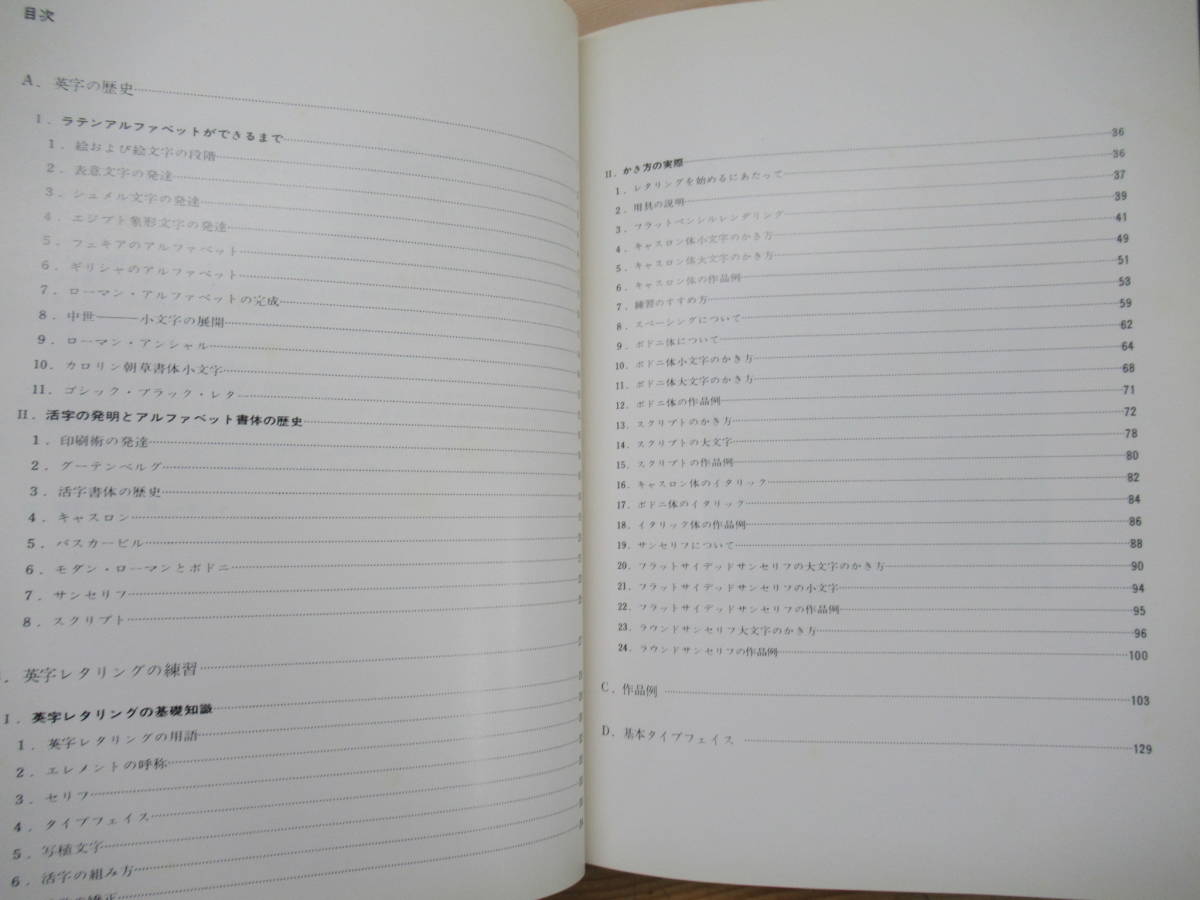 目次
A．英字の歴史
I．ラテンアルファベットができるまで
1．絵および絵文字の段階
2．表意文字の発達
3．シュメル文字の発達
4．エジプト象形文字の発達
5．フェキアのアルファベット
6．ギリシャのアルファベット
7．ローマン・アルファベットの完成
8．中世――小文字の展開
9．ローマン・アンシャル
10．カロリン朝草書体小文字
11．ゴシック・ブラック・レタ
II．活字の発明とアルファベット書体の歴史
1．印刷術の発達
2．グーテンベルグ
3．活字書体の歴史
4．キャスロン
5．バスカービル
6．モダン・ローマンとボドニ
7．サンセリフ
8．スクリプト
．英字レタリングの練習
I．英字レタリングの基礎知識
1．英字レタリングの用語
2．エレメントの呼称
3．セリフ
4．タイプフェイス
5．写植文字
6．活字の組み方
の矯正
II．かき方の実際 36
1．レタリングを始めるにあたって 36
2．用具の説明 37
3．フラットペンシルレンダリング 39
4．キャスロン体小文字のかき方 41
5．キャスロン体大文字のかき方 49
6．キャスロン体の作品例 51
7．練習のすすめ方 53
8．スペーシングについて 59
9．ボドニ体について 62
10．ボドニ体小文字のかき方 64
11．ボドニ体大文字のかき方 68
12．ボドニ体の作品例 71
13．スクリプトのかき方 72
14．スクリプトの大文字 78
15．スクリプトの作品例 80
16．キャスロン体のイタリック 82
17．ボドニ体のイタリック 84
18．イタリック体の作品例 86
19．サンセリフについて 88
20．フラットサイデッドサンセリフの大文字のかき方 90
21．フラットサイデッドサンセリフの小文字 94
22．フラットサイデッドサンセリフの作品例 95
23．ラウンドサンセリフ大文字のかき方 96
24．ラウンドサンセリフの作品例 100
C．作品例 103
D．基本タイプフェイス 129